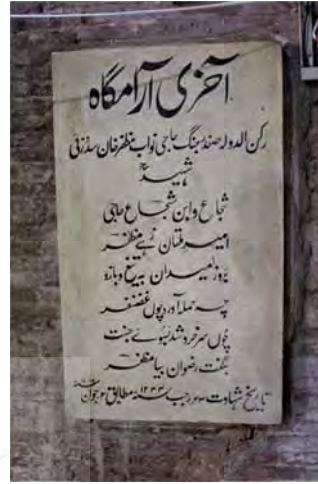 آخری آرامگاہ
رکن الدولہ صفدر جنگ حاجی نواب مظفر خان سدوزئی
شہید
شجاع و ابن شجاع حاجی
امیر ملتان زہے مظفر
بروز میدان بہ تیغ و بازو
چہ حملہ آورد چوں غضنفر
چوں سرخرو شد بسوئے جنت
بگفت رضوان بیا مظفر
تاریخ شہادت رجب ۱۲۳۳ مطابق جون